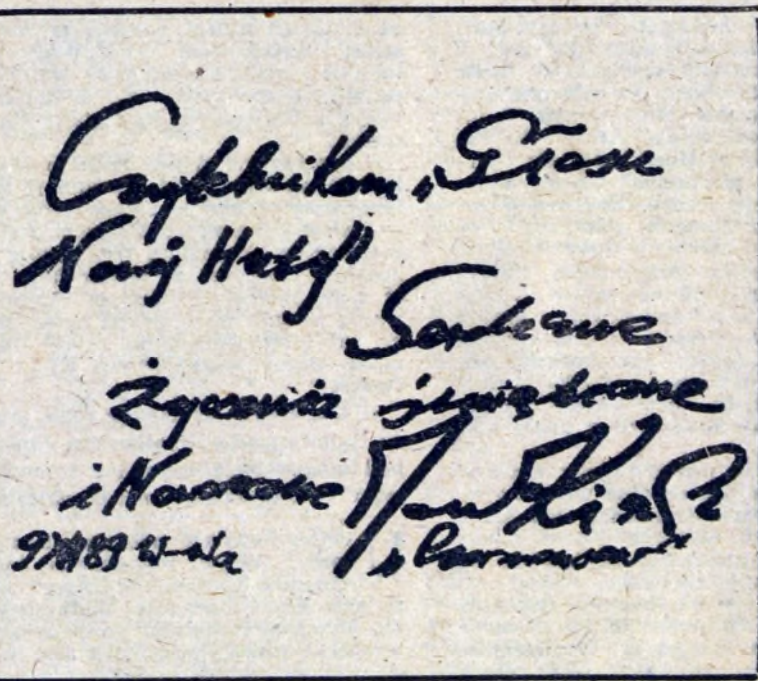 Czytelnikom „Głosu
Nowej Huty”
Serdeczne
życzenia świąteczne
i Noworoczne
9 XII 89 W-wa